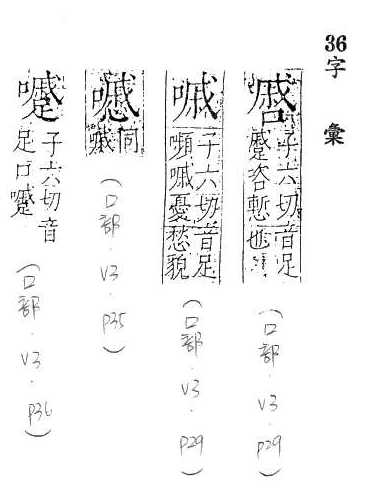 36字彙
子六切音足
蹙咨慙也
(口部.V3.P29)
嘁
子六切音足
嚬嘁憂愁貌
(口部.V3.P29)
同
嘁
(口部.V3.P35)
子六切音
足口
(口部.V3.P36)